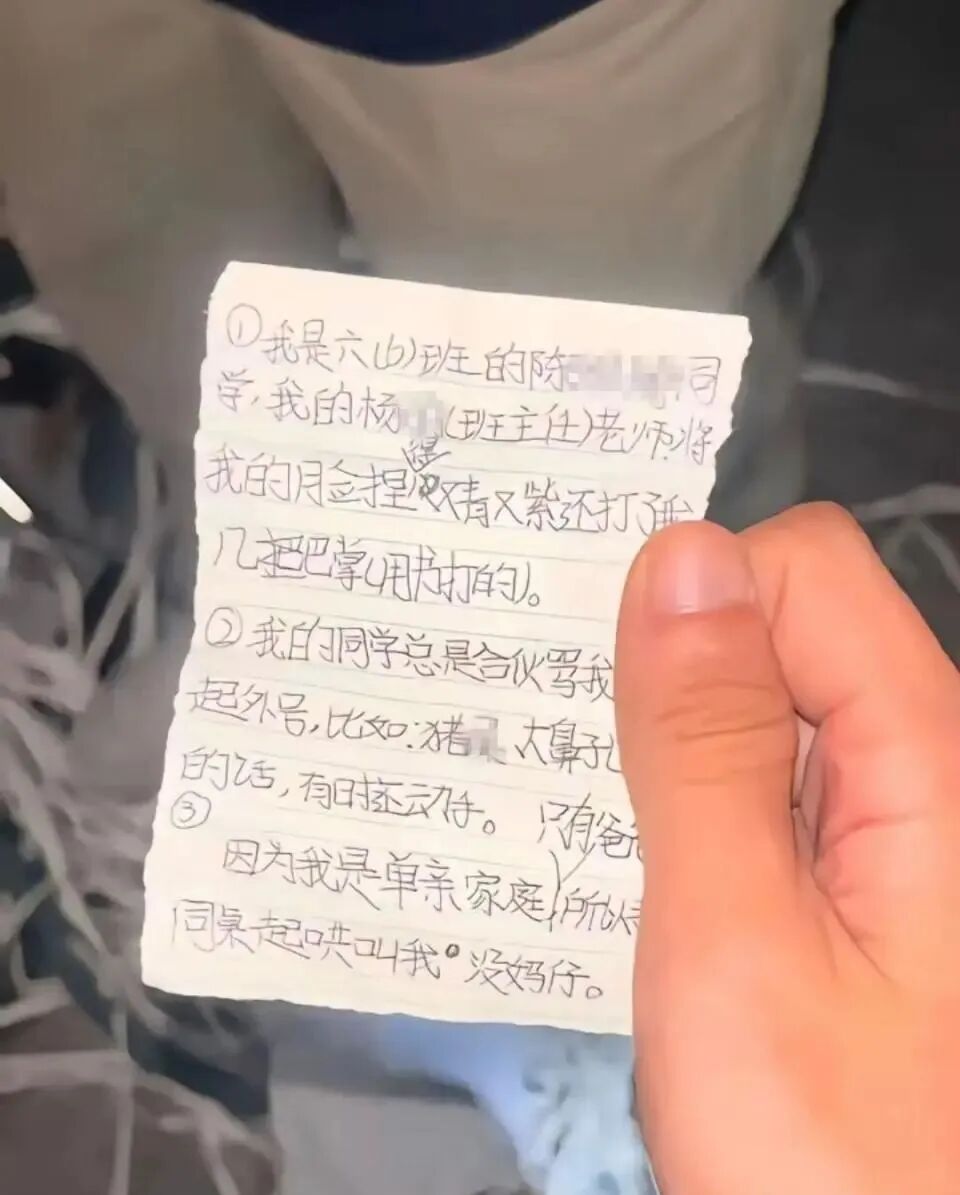 ①我是六(6)班的陈同
学,我的杨(班主任)老师将
我的脸捏得又青又紫还打了我
几把巴掌(用书打的)。
②我的同学总是合伙骂我
起外号,比如:猪 大鼻子
的话,有时还动手。
③
只有爸爸
因为我是单亲家庭,所以
同桌起哄叫我“没妈仔。